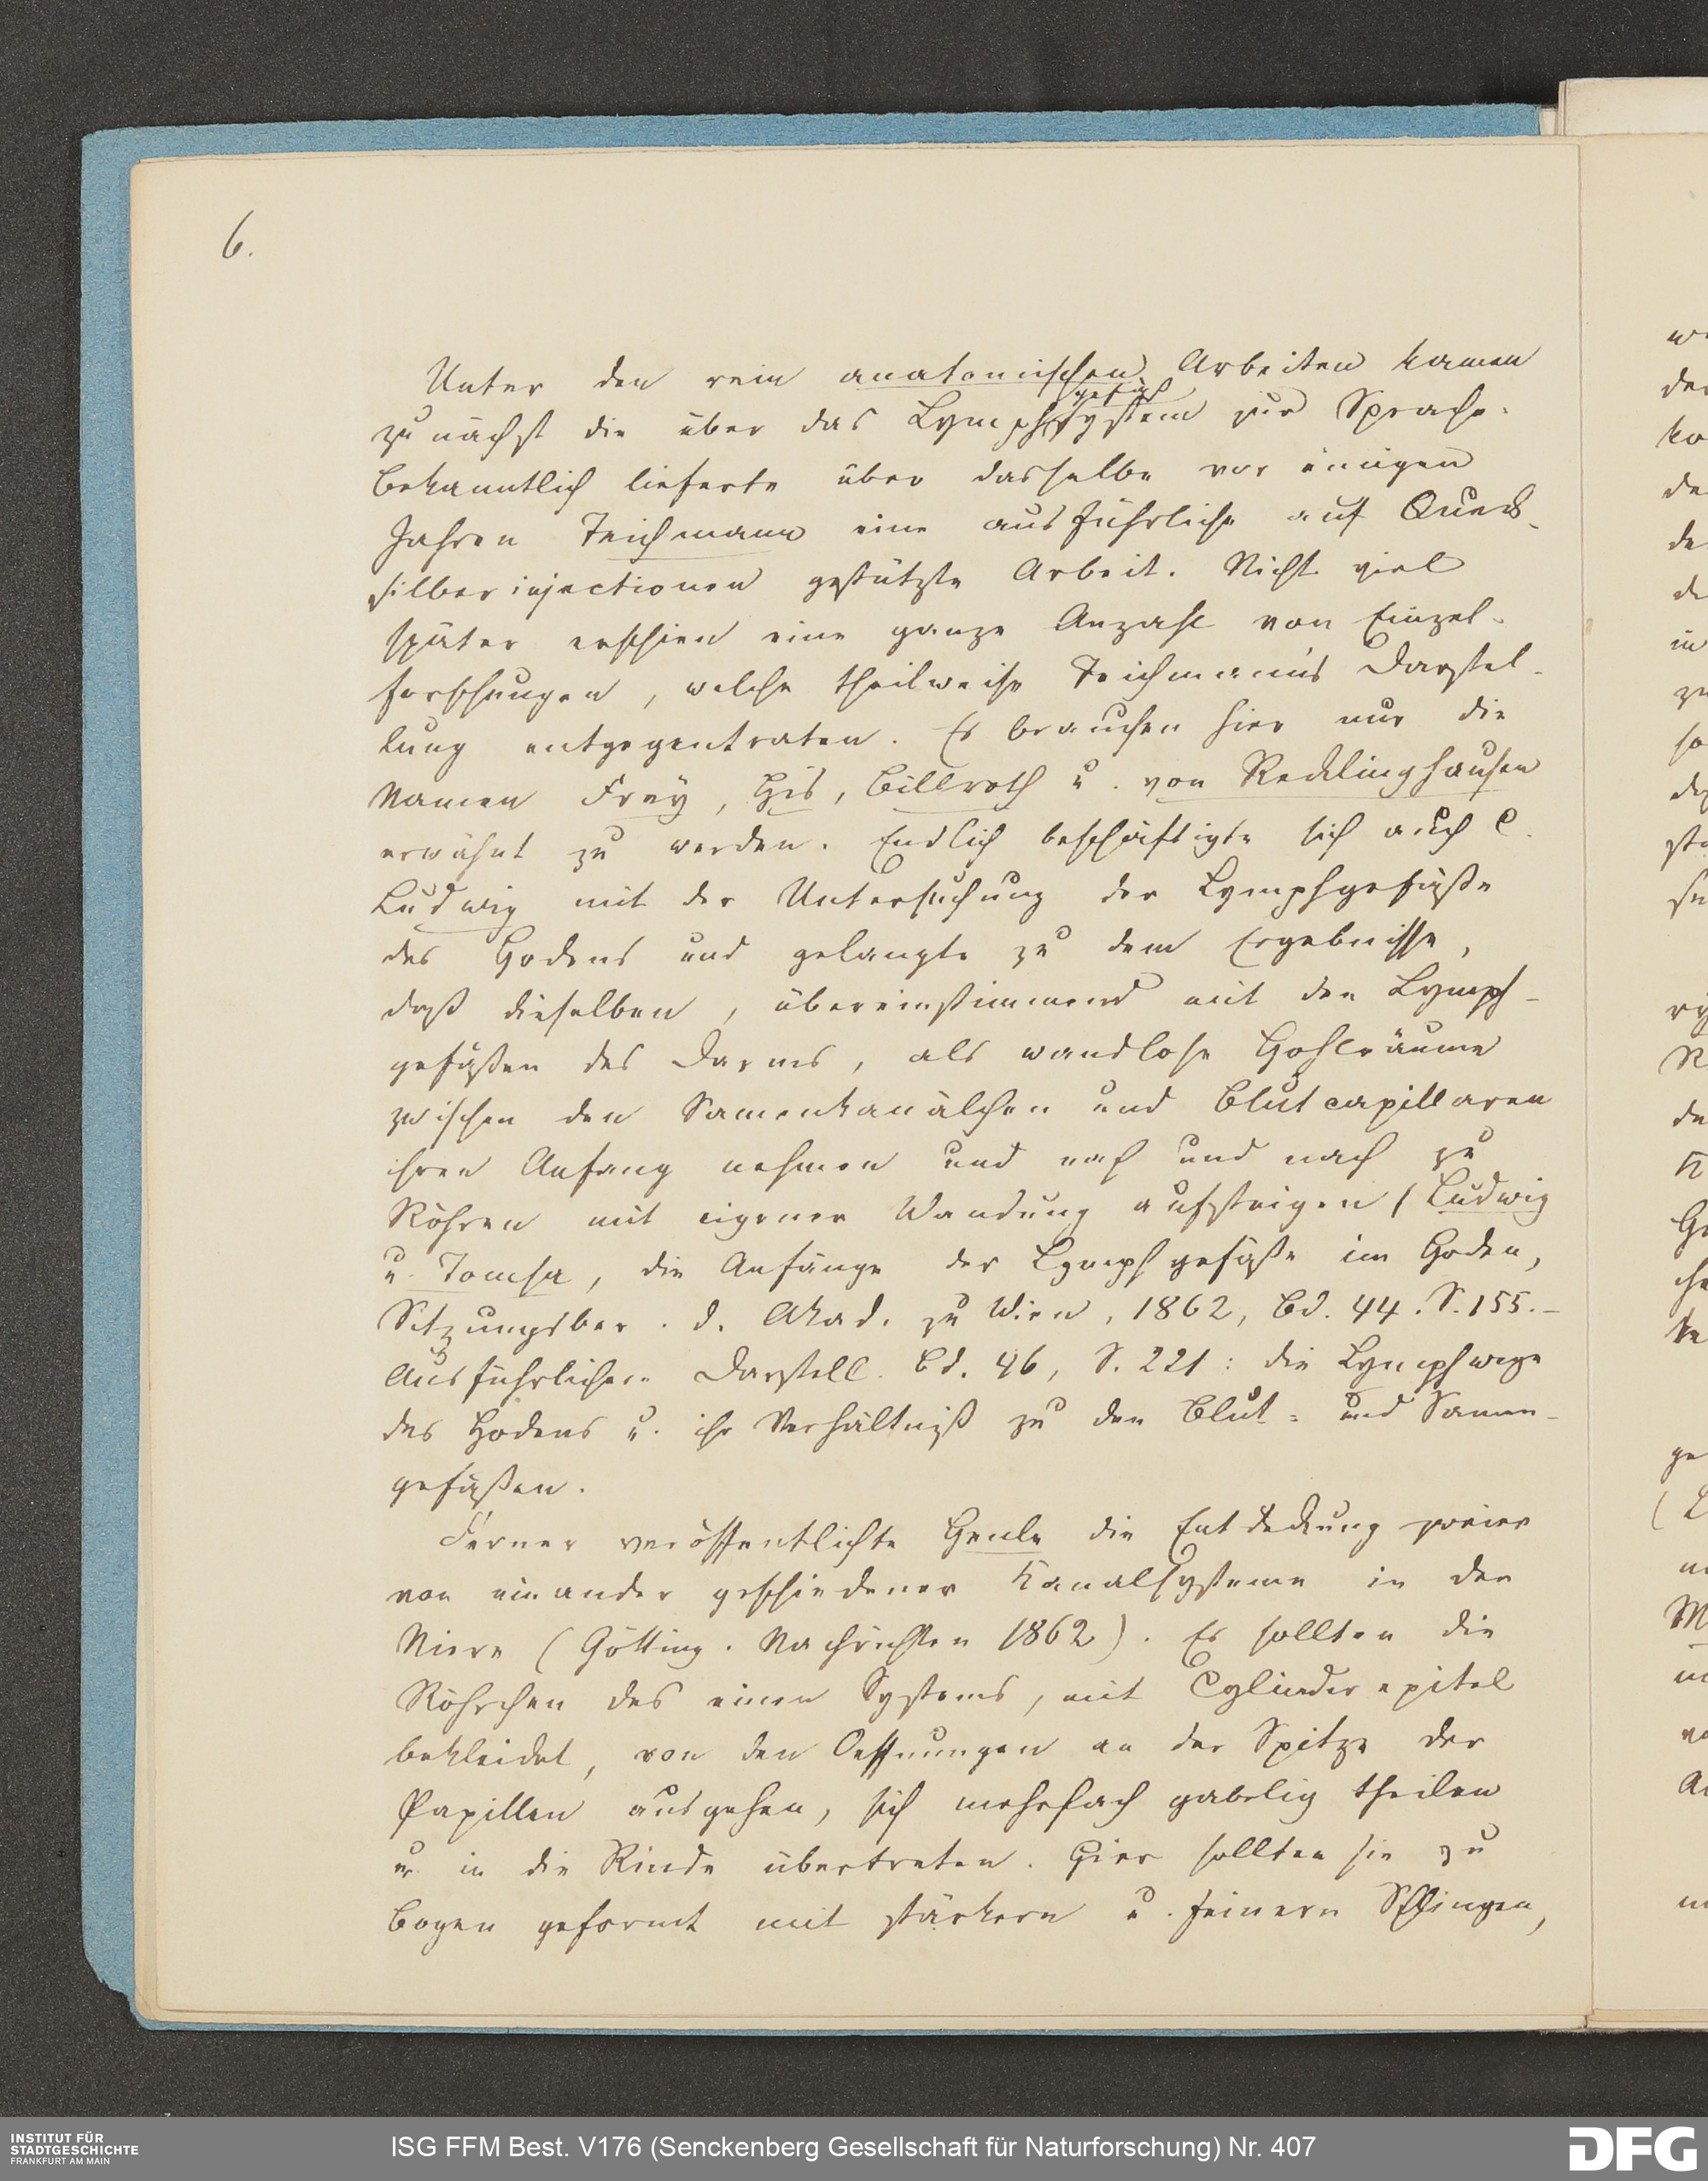 6.
Unter den rein anatomischen Arbeiten kamen
zunächst die über das Lymphgefäßsystem zur Sprache.
Bekanntlich lieferte über dasselbe vor einigen
Jahren Teichmann eine ausführliche auf Queck-
silberinjectionen gestützte Arbeit. Nicht viel
später erschien eine ganze Anzahl von Einzel-
forschungen, welche theilweise Teichmann's Darstel-
lung entgegentraten. Es brauchen hier nur die
Namen Frey, His, Billroth u. von Recklinghausen
erwähnt zu werden. Endlich beschäftigte sich auch C.
Ludwig mit der Untersuchung der Lymphgefäße
des Hodens und gelangte zu dem Ergebnisse,
daß dieselben, übereinstimmend mit den Lymph-
gefäßen des Darms, als wandlose Hohlräume
zwischen den Samenkanälchen und Blutcapillaren
ihren Anfang nehmen und nach und nach zu
Röhren mit eigener Wandung aufsteigen (Ludwig
u. Tomsa, die Anfänge der Lymphgefäße im Hoden,
Sitzungsber. d. Akad. zu Wien, 1862, Bd. 44. S. 155.-
Ausführlichere Darstell. Bd. 46, S. 221: die Lymphwege
des Hodens u. ihr Verhältniß zu den Blut- und Samen-
gefäßen.
Ferner veröffentlichte Henle die Entdeckung zweier
von einander geschiedener Kanalsysteme in der
Niere (Götting. Nachrichten 1862). Es sollten die
Röhrchen des einen Systems, mit Cylinderepitel
bekleidet, von den Oeffnungen an der Spitze der
Papillen ausgehen, sich mehrfach gabelig theilen
u. in die Rinde übertreten. Hier sollten sie zu
Bogen geformt mit stärkern u. feinern Schlingen,
INSTITUT FÜR
STADTGESCHICHTE
FRANKFURT AM MAIN
ISG FFM Best. V176 (Senckenberg Gesellschaft für Naturforschung) Nr. 407
DFG